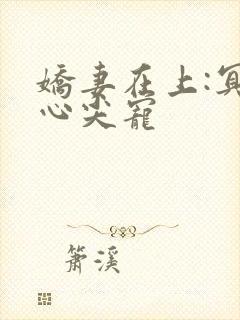 嬌妻在上:冥
心尖寵
簫溪